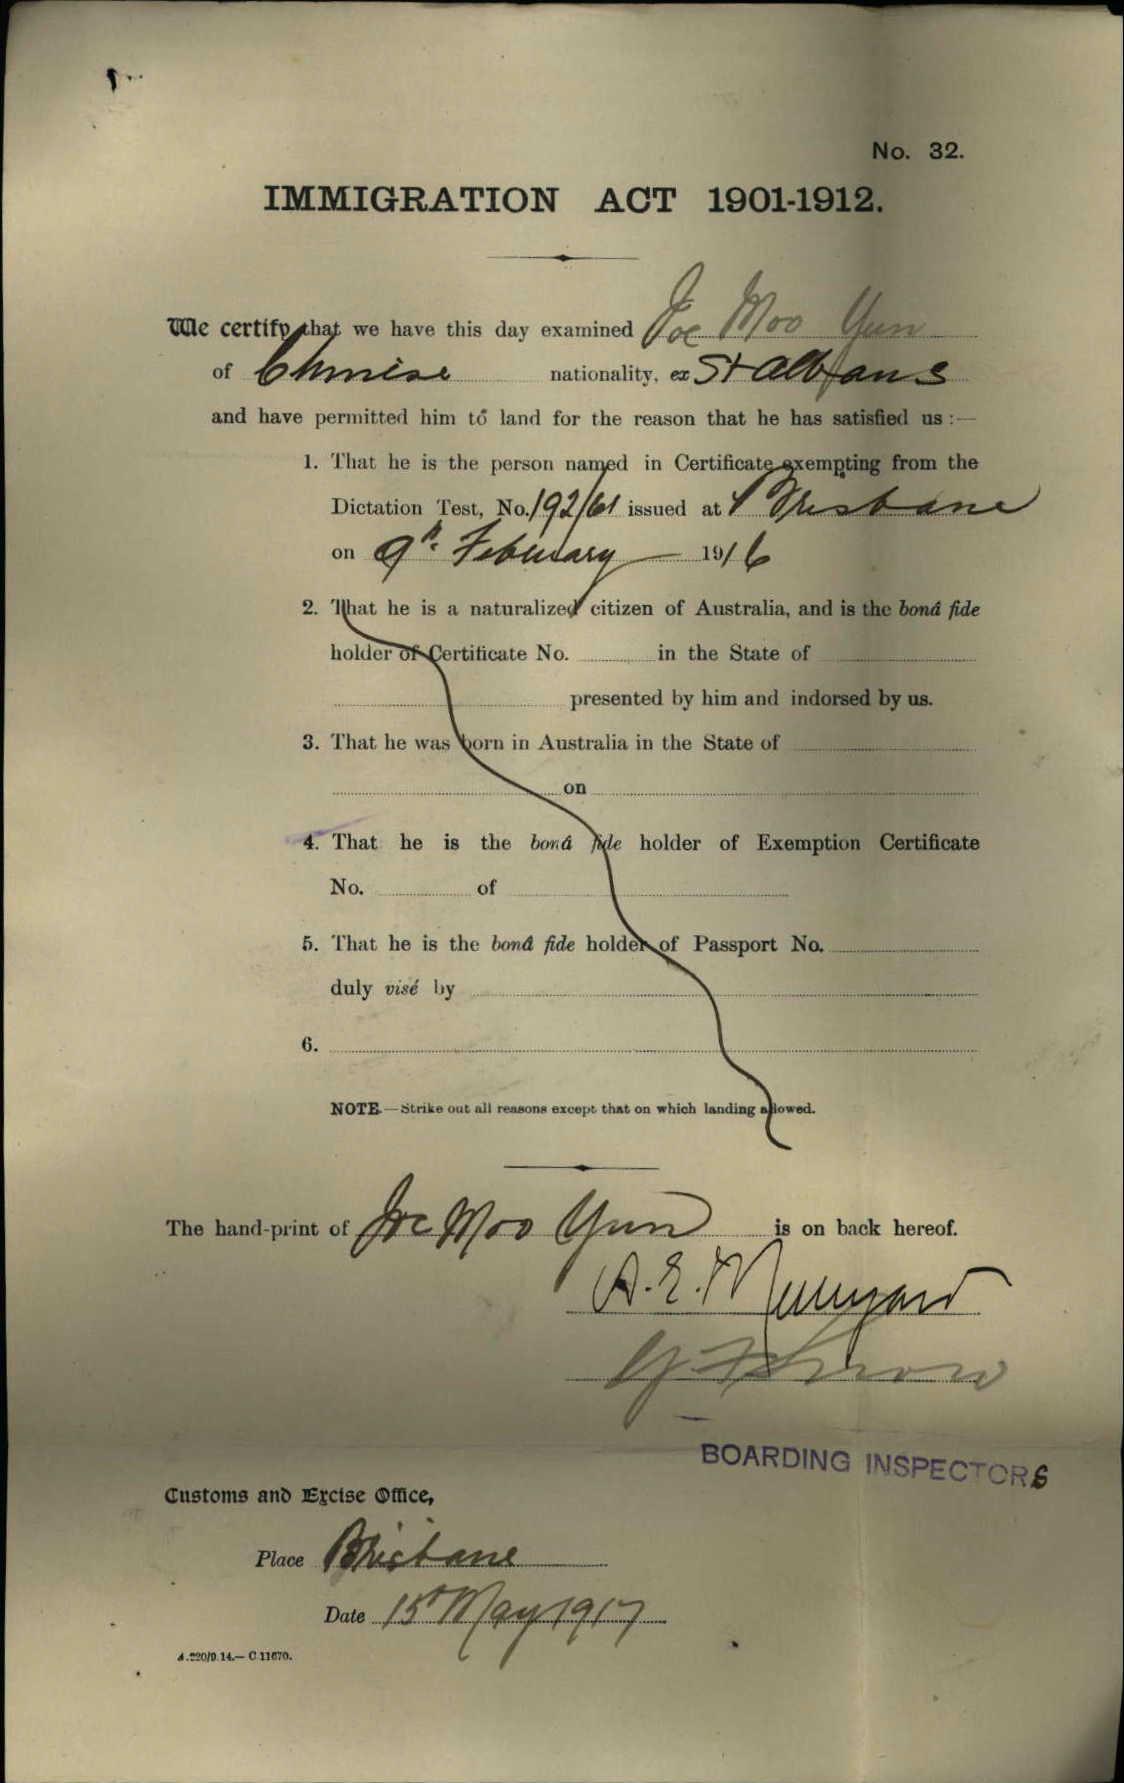 No. 32.
IMMIGRATION ACT 1901-1912.
We certify that we have this day examined Joe Moo Yun
of Chinese nationality, ex St Albans
and have permitted him to land for the reason that he has satisfied us :—
1. That he is the person named in Certificate exempting from the
Dictation Test, No. 192/61 issued at Brisbane
on 9th February 1916
2. That he is a naturalized citizen of Australia, and is the bonâ fide
holder of Certificate No. in the State of
presented by him and indorsed by us.
3. That he was born in Australia in the State of
on
4. That he is the bonâ fide holder of Exemption Certificate
No. of
5. That he is the bonâ fide holder of Passport No.
duly visé by
6.
NOTE.—Strike out all reasons except that on which landing allowed.
The hand-print of Joe Moo Yun is on back hereof.
A. E.
BOARDING INSPECTORS
Customs and Excise Office,
Place Brisbane
Date 15th May 1917
A.220/9.14.—C.11670.